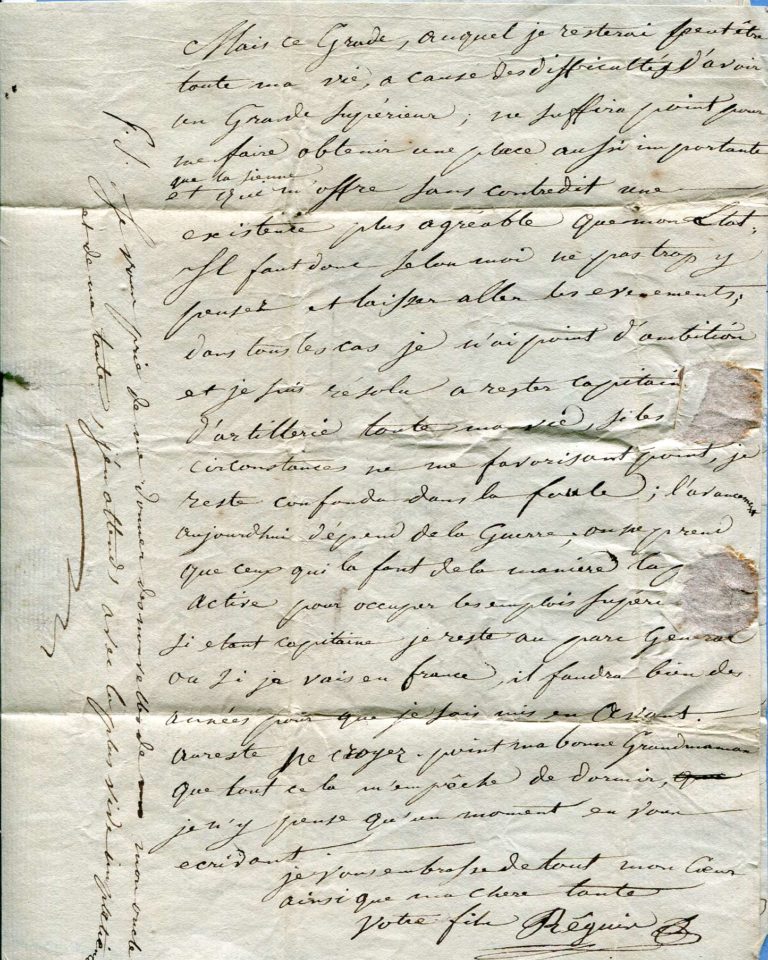 Mais ce Grade, auquel je resterai peut être
toute ma vie, a cause des difficultés d'avoir
un Grade Supérieur; ne suffira point pour
me faire obtenir une place aussi importante
que la sienne
et qui m'offre sans contredit une
existence plus agréable que mon Etat;
Il faut donc selon moi ne pas trop y
penser et laisser aller les evenements;
dans tous les cas je n'ai point d'ambition
et je suis résolu a rester capitain
d'artillerie toute ma vie, si les
circonstances ne me favorisant point, je
reste confondu dans la foule; l'avancement
aujourdhui dépend de la Guerre; on ne prend
que ceux qui la font de la manière la
active pour occuper les emplois Supéri
Si etant capitaine je reste au parc General
ou Si je vais en france, il faudra bien des
années pour que je sois mis en Avant.
au reste ne croyez point ma bonne Grandmaman
que tout cela m'empêche de dormir,
je n'y pense qu'un moment en vous
ecrivant
je vous embrasse de tout mon Cœur
ainsi que ma chere tante
Votre fils Réguin
P.S. Je vous prie de me donner des nouvelles de mon oncle
et de ma tante, j'en attends avec la plus vive impatien